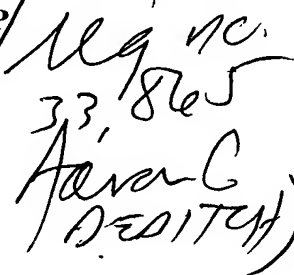 Reg no.
33,865
Aaron C
DEDITCH)